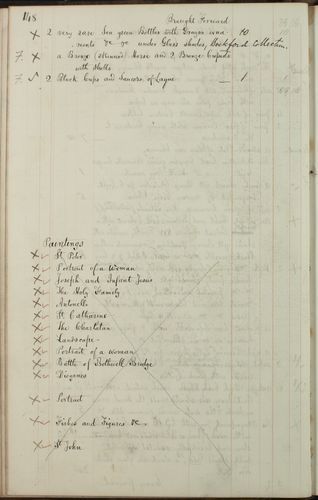 148
Brought Forward
x 2 very rare Sea green Bottles with Grapes and
&c &c under Glass shades, Beckford Collection. 10
7. x a Bronze Horse and 2 Bronze Cupids
with Shells
7. 2 Black Cups and Saucers, of Laque — 1
Paintings
x St. Peter
x Portrait of a Woman
x Joseph and Infant Jesus
x The Holy Family
x Antonello
x St Catharine
x The Charlatan
x Landscape
x Portrait of a woman
x Battle of Bothwell Bridge
x Diogenes
x Portrait
x Fishes and Figures &c
x St John